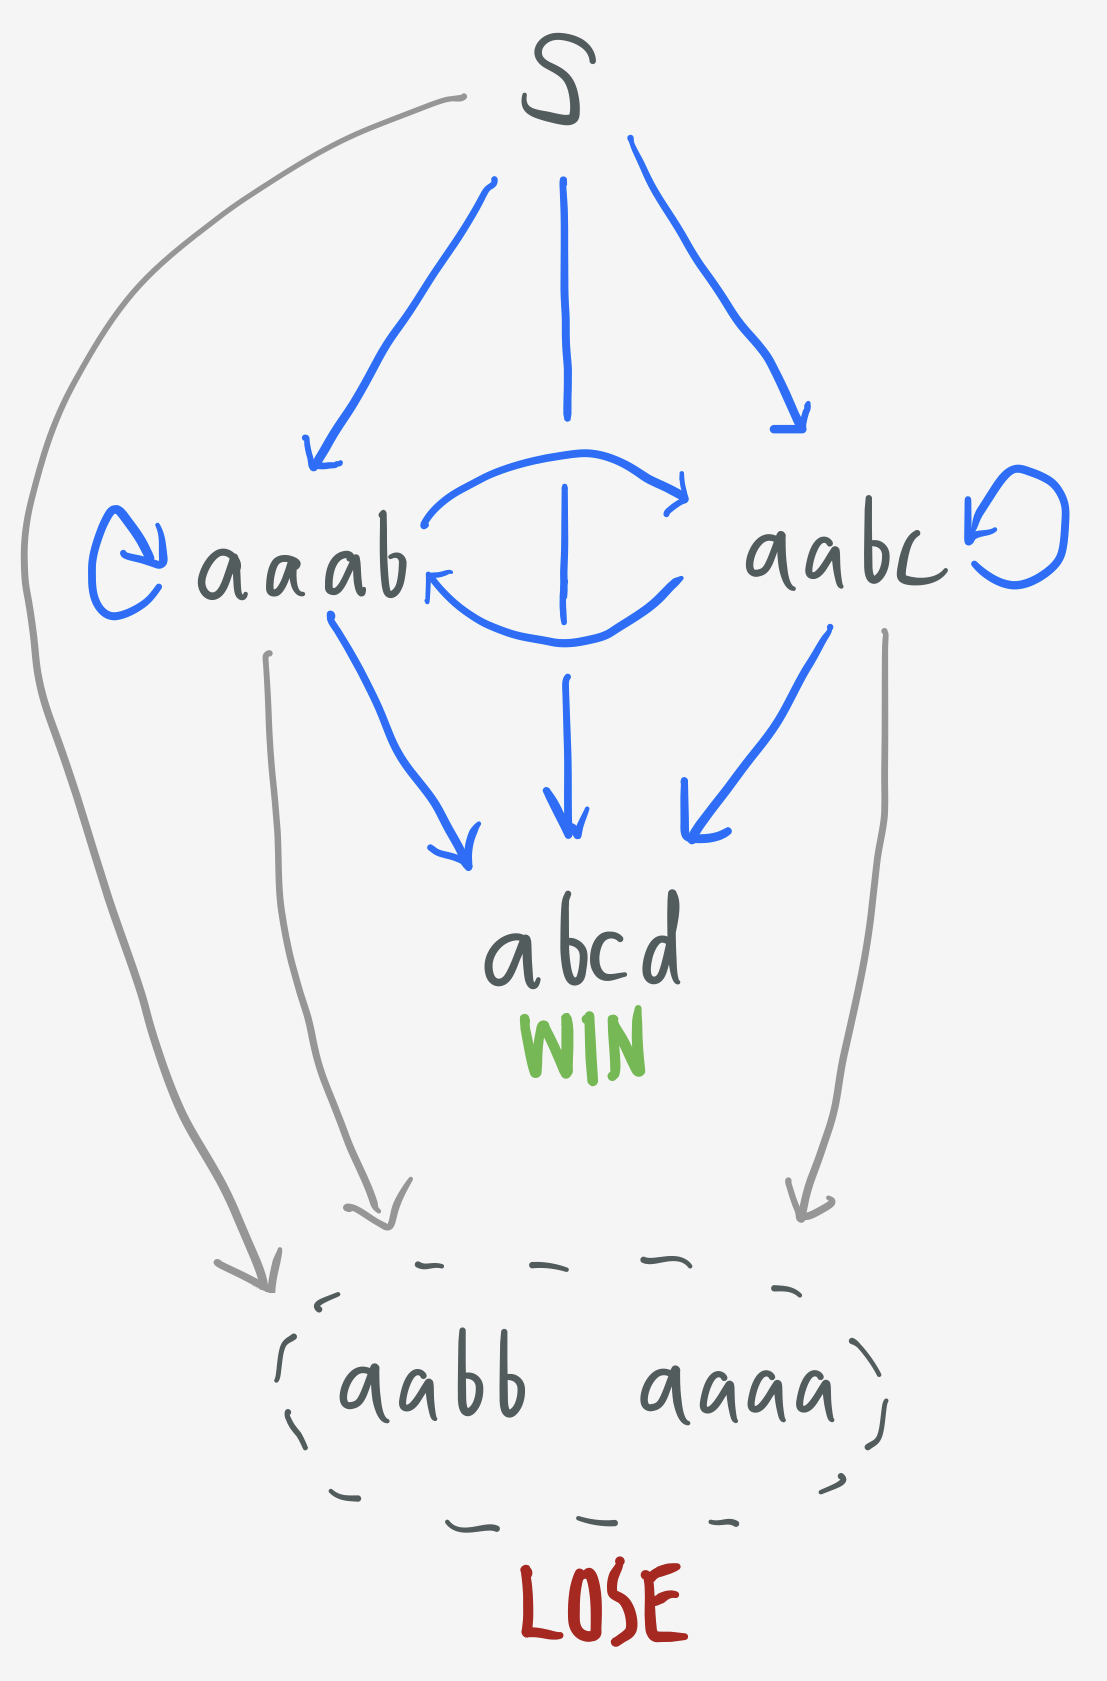 S
aaab aabc
abcd
WIN
aabb aaaa
LOSE